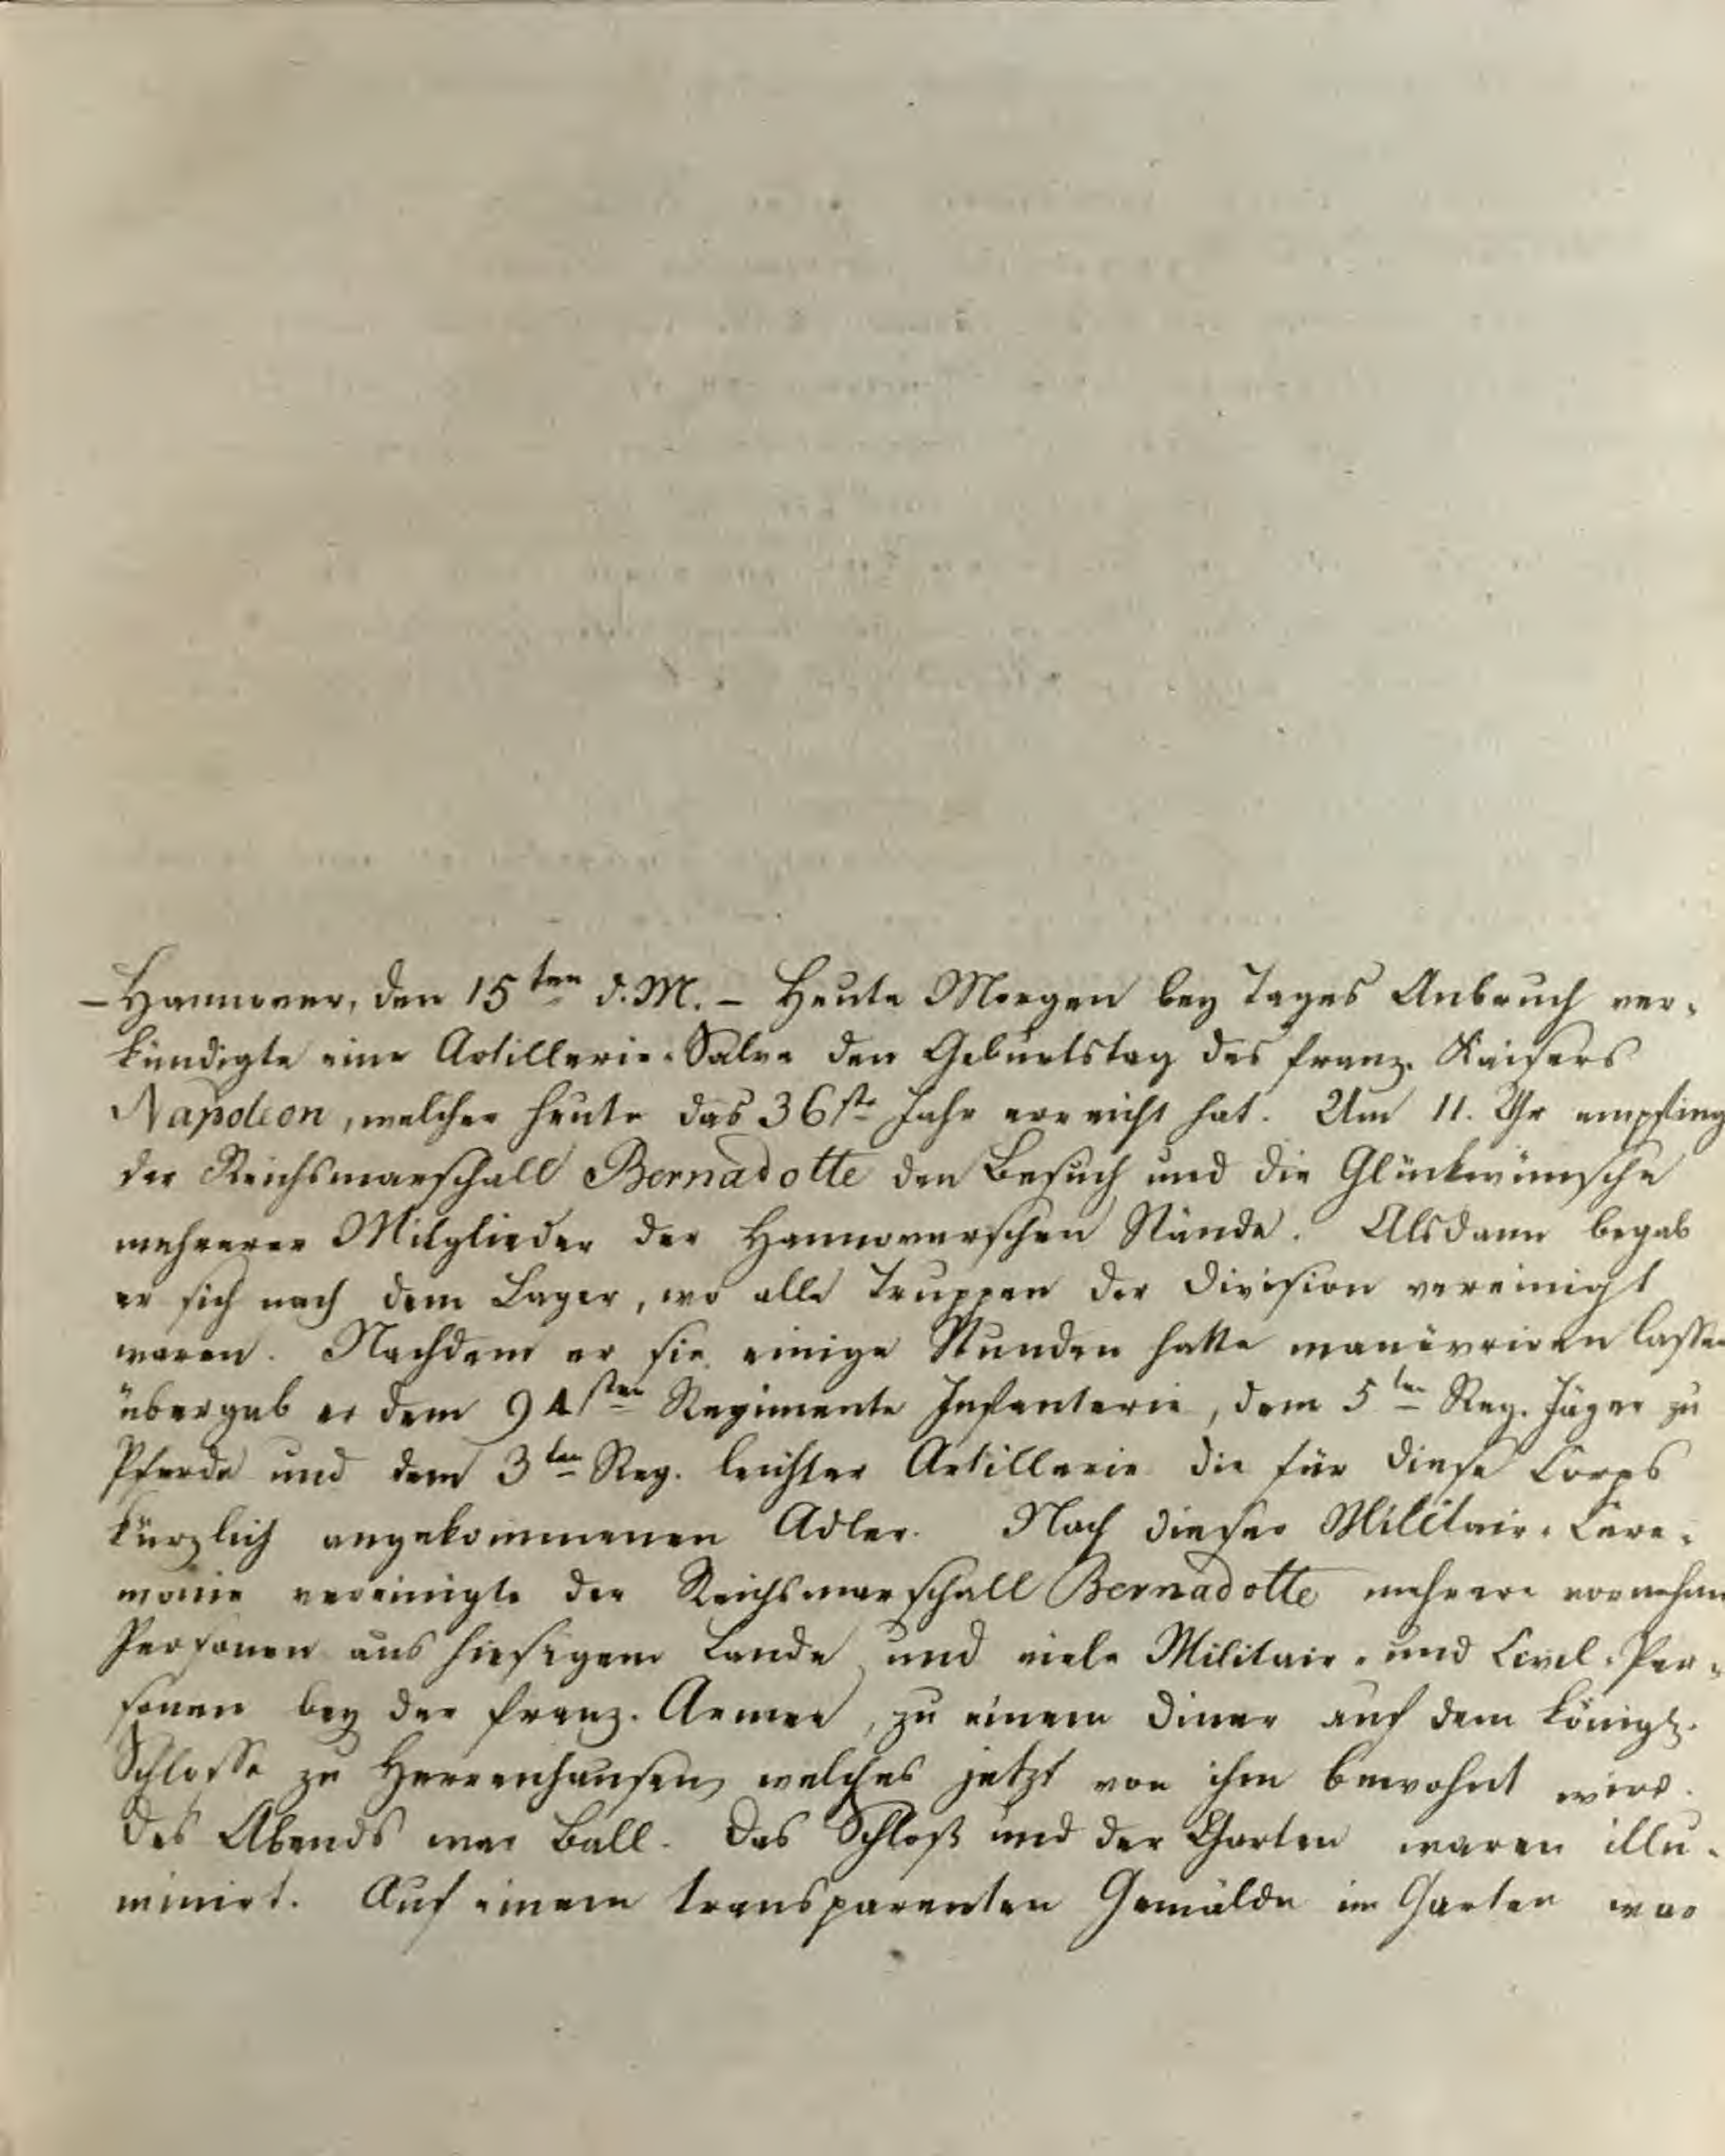 – Hannover, den 15ten d. M. – Heute Morgen bey Tages Anbruch ver-
kündigte eine Artillerie-Salve den Geburtstag des franz. Kaisers
Napoleon, welcher heute das 36ste Jahr erreicht hat. Um 11. Uhr empfing
der Reichsmarschall Bernadotte den Besuch und die Glückwünsche
mehrerer Mitglieder der Hannoverschen Stände. Alsdann begab
er sich nach dem Lager, wo alle Truppen der Division vereinigt
waren. Nachdem er sie einige Stunden hatte manövriren lassen
übergab er dem 94sten Regimente Infanterie, dem 5ten Reg. Jäger zu
Pferde und dem 3ten Reg. leichter Artillerie die für diese Corps
kürzlich angekommenen Adler. Nach dieser Militair-Cere-
monie vereinigte der Reichsmarschall Bernadotte mehrere vornehme
Personen aus hiesigem Lande und viele Militair- und Civil-Per-
sonen bey der franz. Armee, zu einem Diner auf dem königl.
Schlosse zu Herrenhausen, welches jetzt von ihm bewohnt wird.
Des Abends war Ball. Das Schloß und der Garten waren illu-
minirt. Auf einem transparenten Gemälde im Garten war